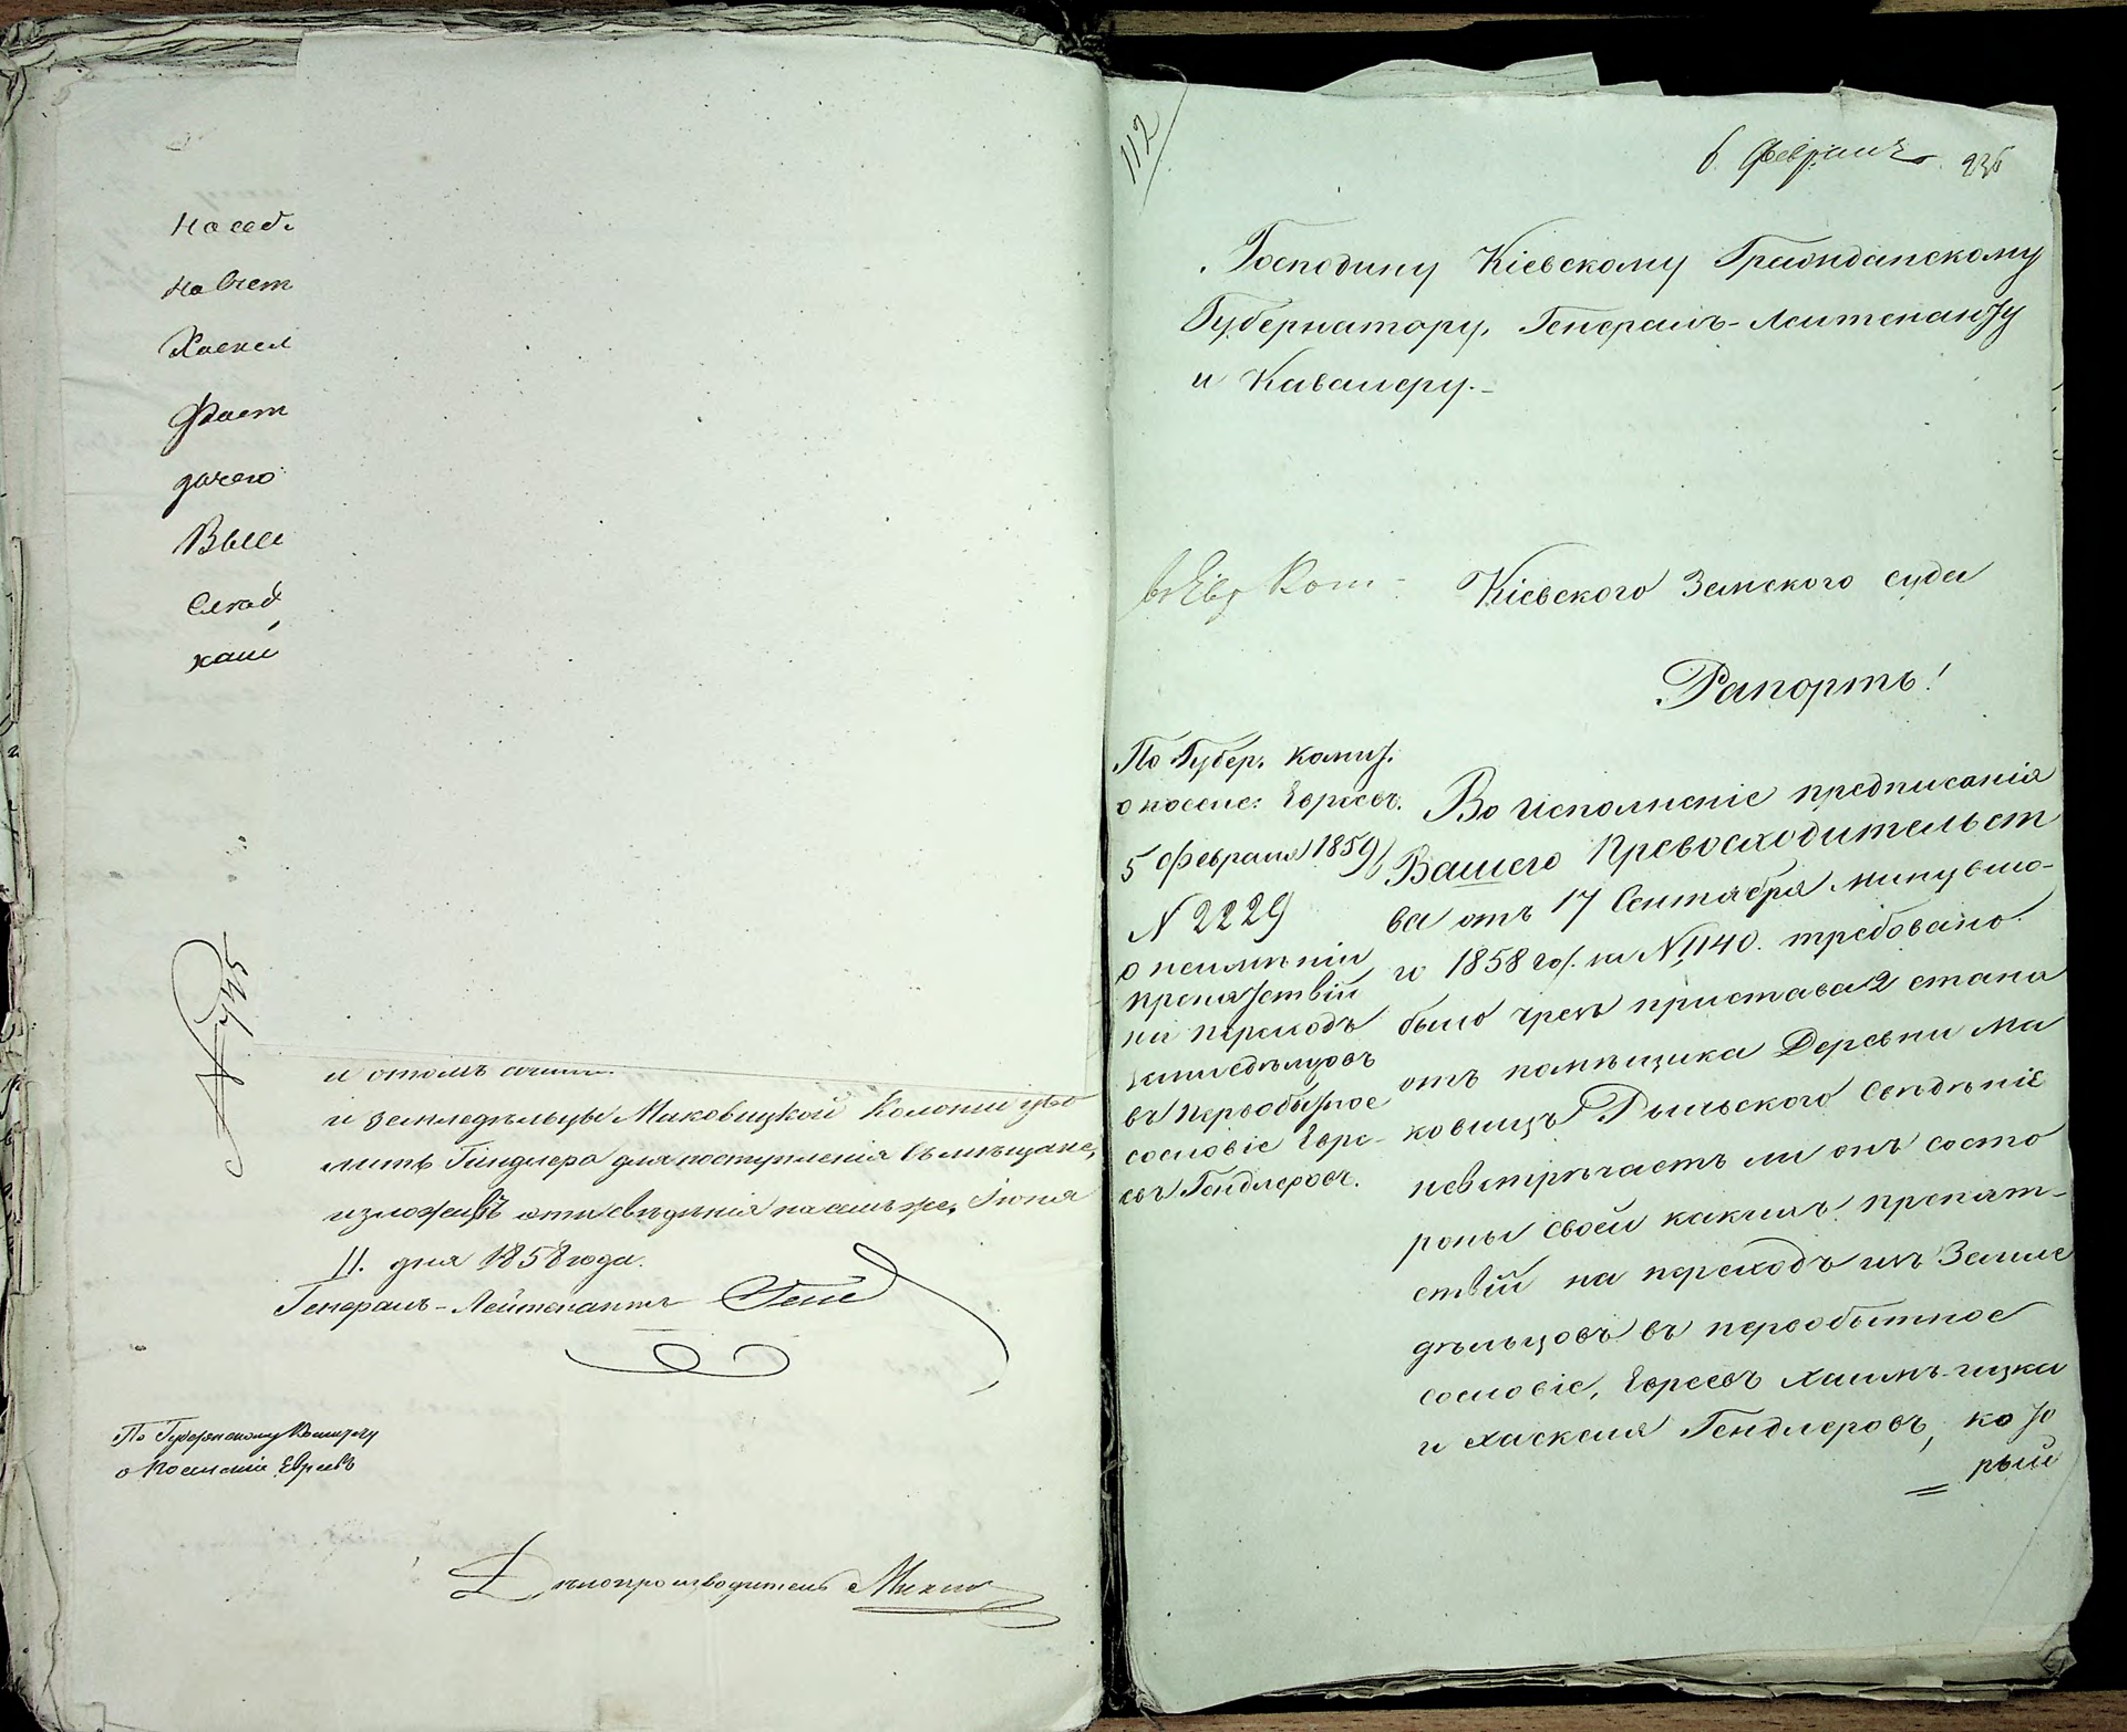 На сед.
На вест
Хаскел
Фаст
дачею
Выш
Слав
хаи
и земледѣльцы Маковицкой Колоніи
Гиндлера для поступленія въ мѣщане,
изложивъ эти свѣдѣнія на семъ же, Іюня
11. дня 1858 года.
Генералъ-Лейтенантъ Гессе
По Губернскому Комитету
о Поселеніи Евреевъ
Дѣлопроизводитель
112
6 Февраля 236
Господину Кіевскому Гражданскому
Губернатору, Генералъ-Лейтенанту
и Кавалеру.-
въ Евр. Ком-
Кіевского Земского суда
Рапортъ!
По Губер. Комит.
о посел: Евреевъ.
5 Февраля 1859
N 2229
о неимѣніи
препятствій
на переходъ
земледѣлцовъ
въ первобытное
сословіе Евре-
евъ Гендлеровъ.
Во исполненіе предписанія
Вашего Превосходительст
ва отъ 17 Сентября минувшо-
го 1858 го/. за N 1140. требовано
было чрезъ пристава 2 стана
отъ помѣщика Деревни Ма
ковищъ Рыльского Свѣдѣніе
невстрѣчаетъ ли онъ состо
роны своей какихъ препят-
ствій на переходъ изъ Земле
дѣльцовъ въ первобытное
сословіе, Евреевъ Хаимъ-ицка
и Хаскеля Гендлеровъ, кото
рый